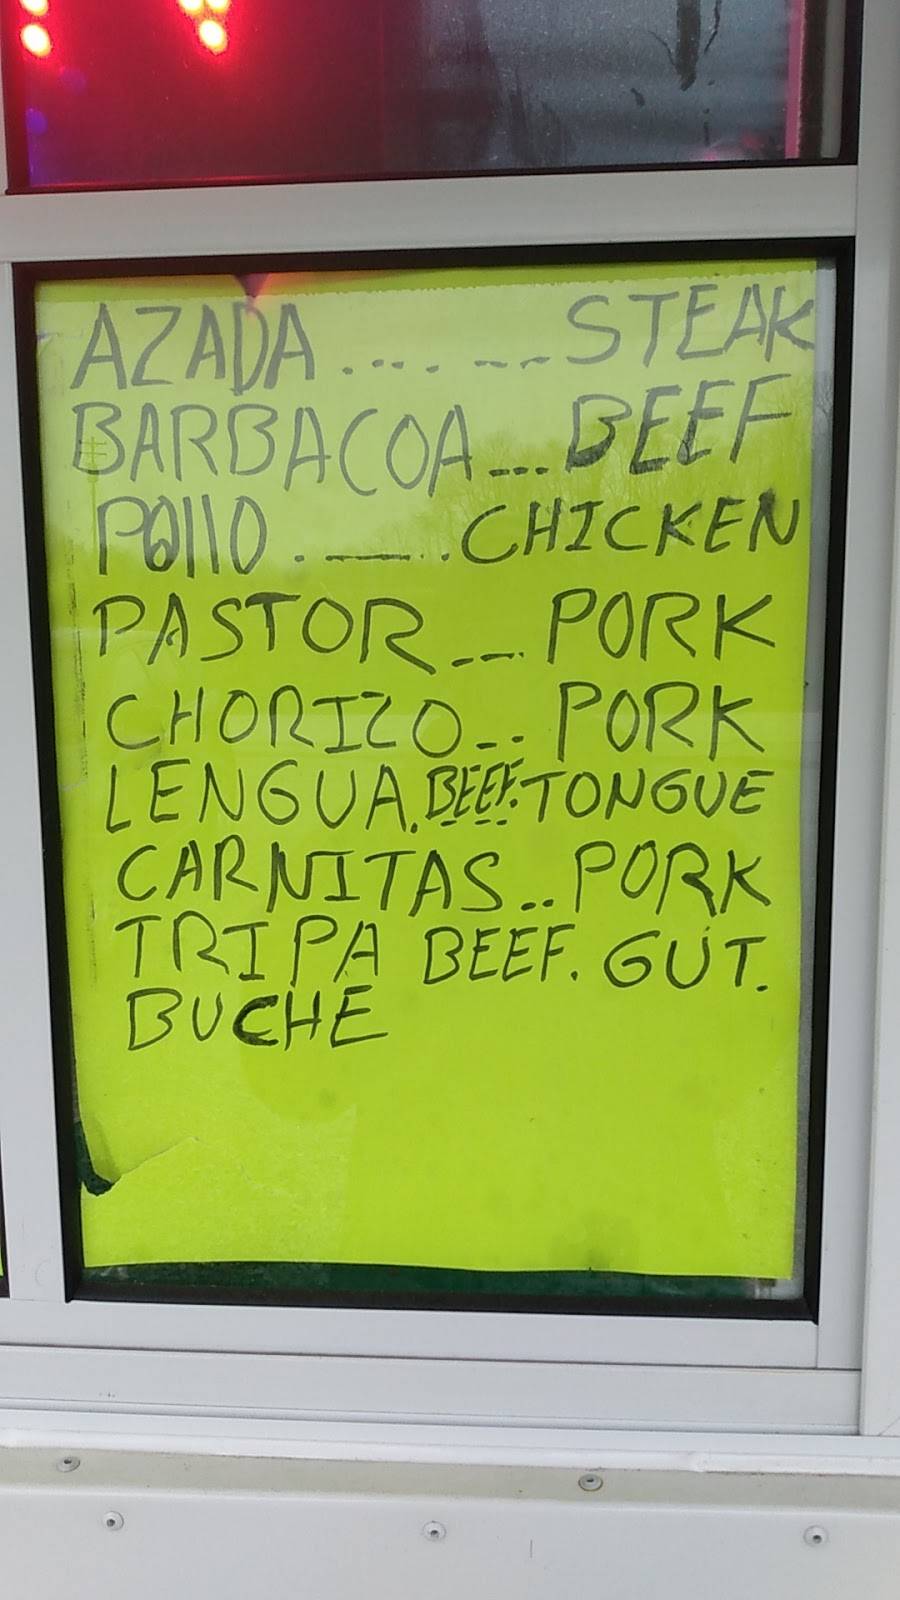 AZADA....---STEAK
BARBACOA...BEEF
POllO.-—-..CHICKEN
PASTOR.--.PORK
CHORIZO-..PORK
LENGUA.BEEF.TONGUE
CARNITAS..PORK
TRIPA BEEF. GUT.
BUCHE